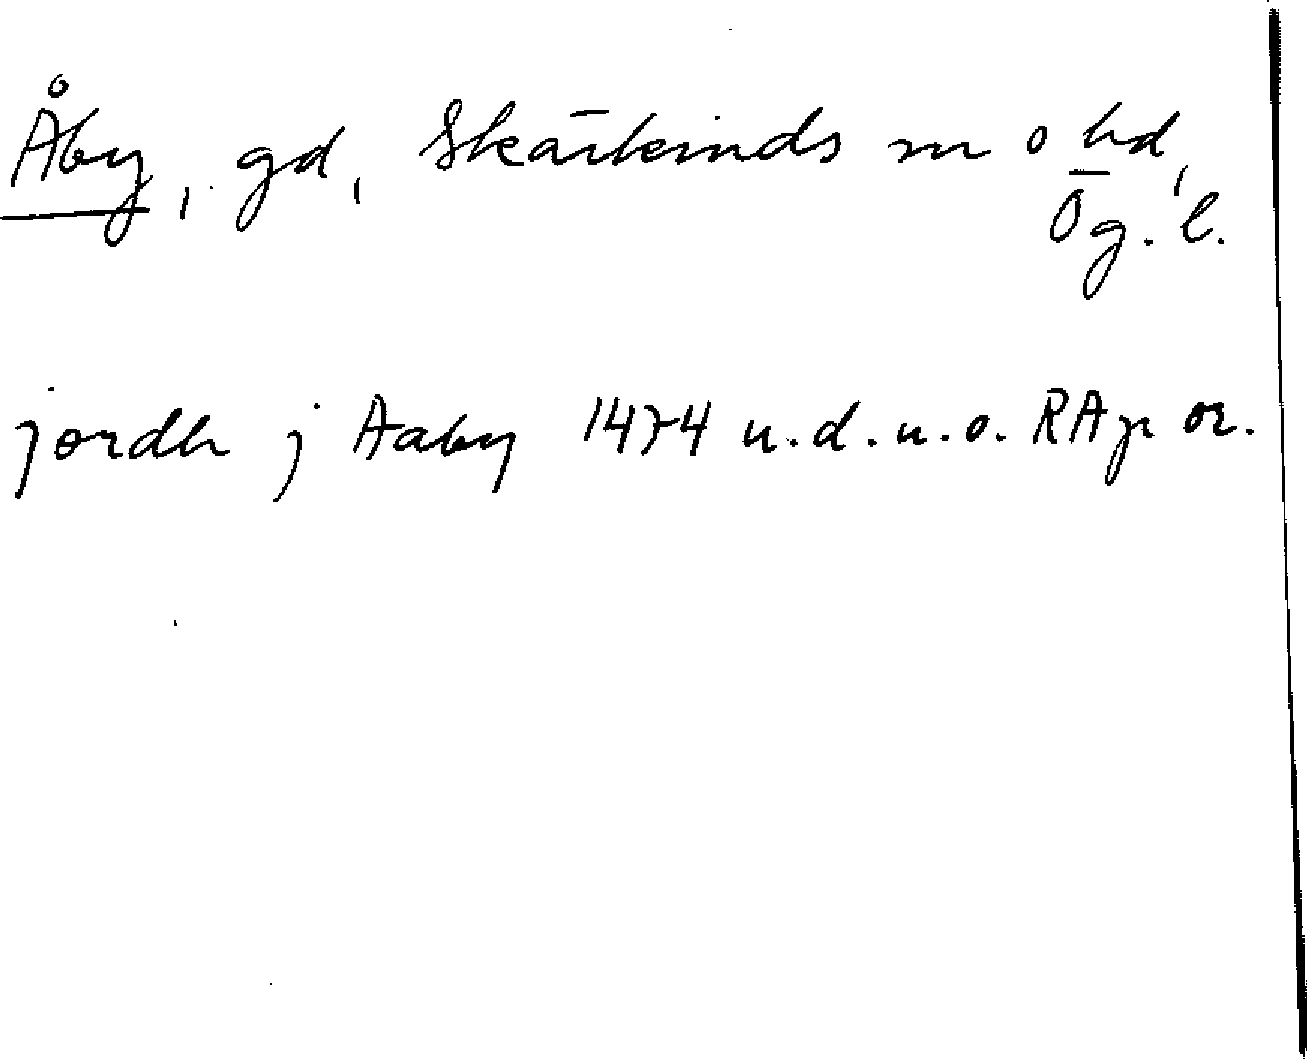 Åby, gd, Skärkinds sn o hd,
Ög. l.
jordh j Aaby 1474 u.d.u.o. RAp or.